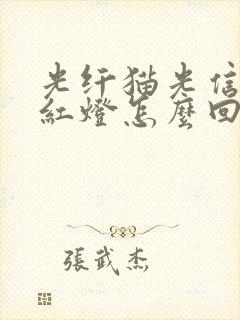 光纤猫光信
紅燈怎麼回
張武杰